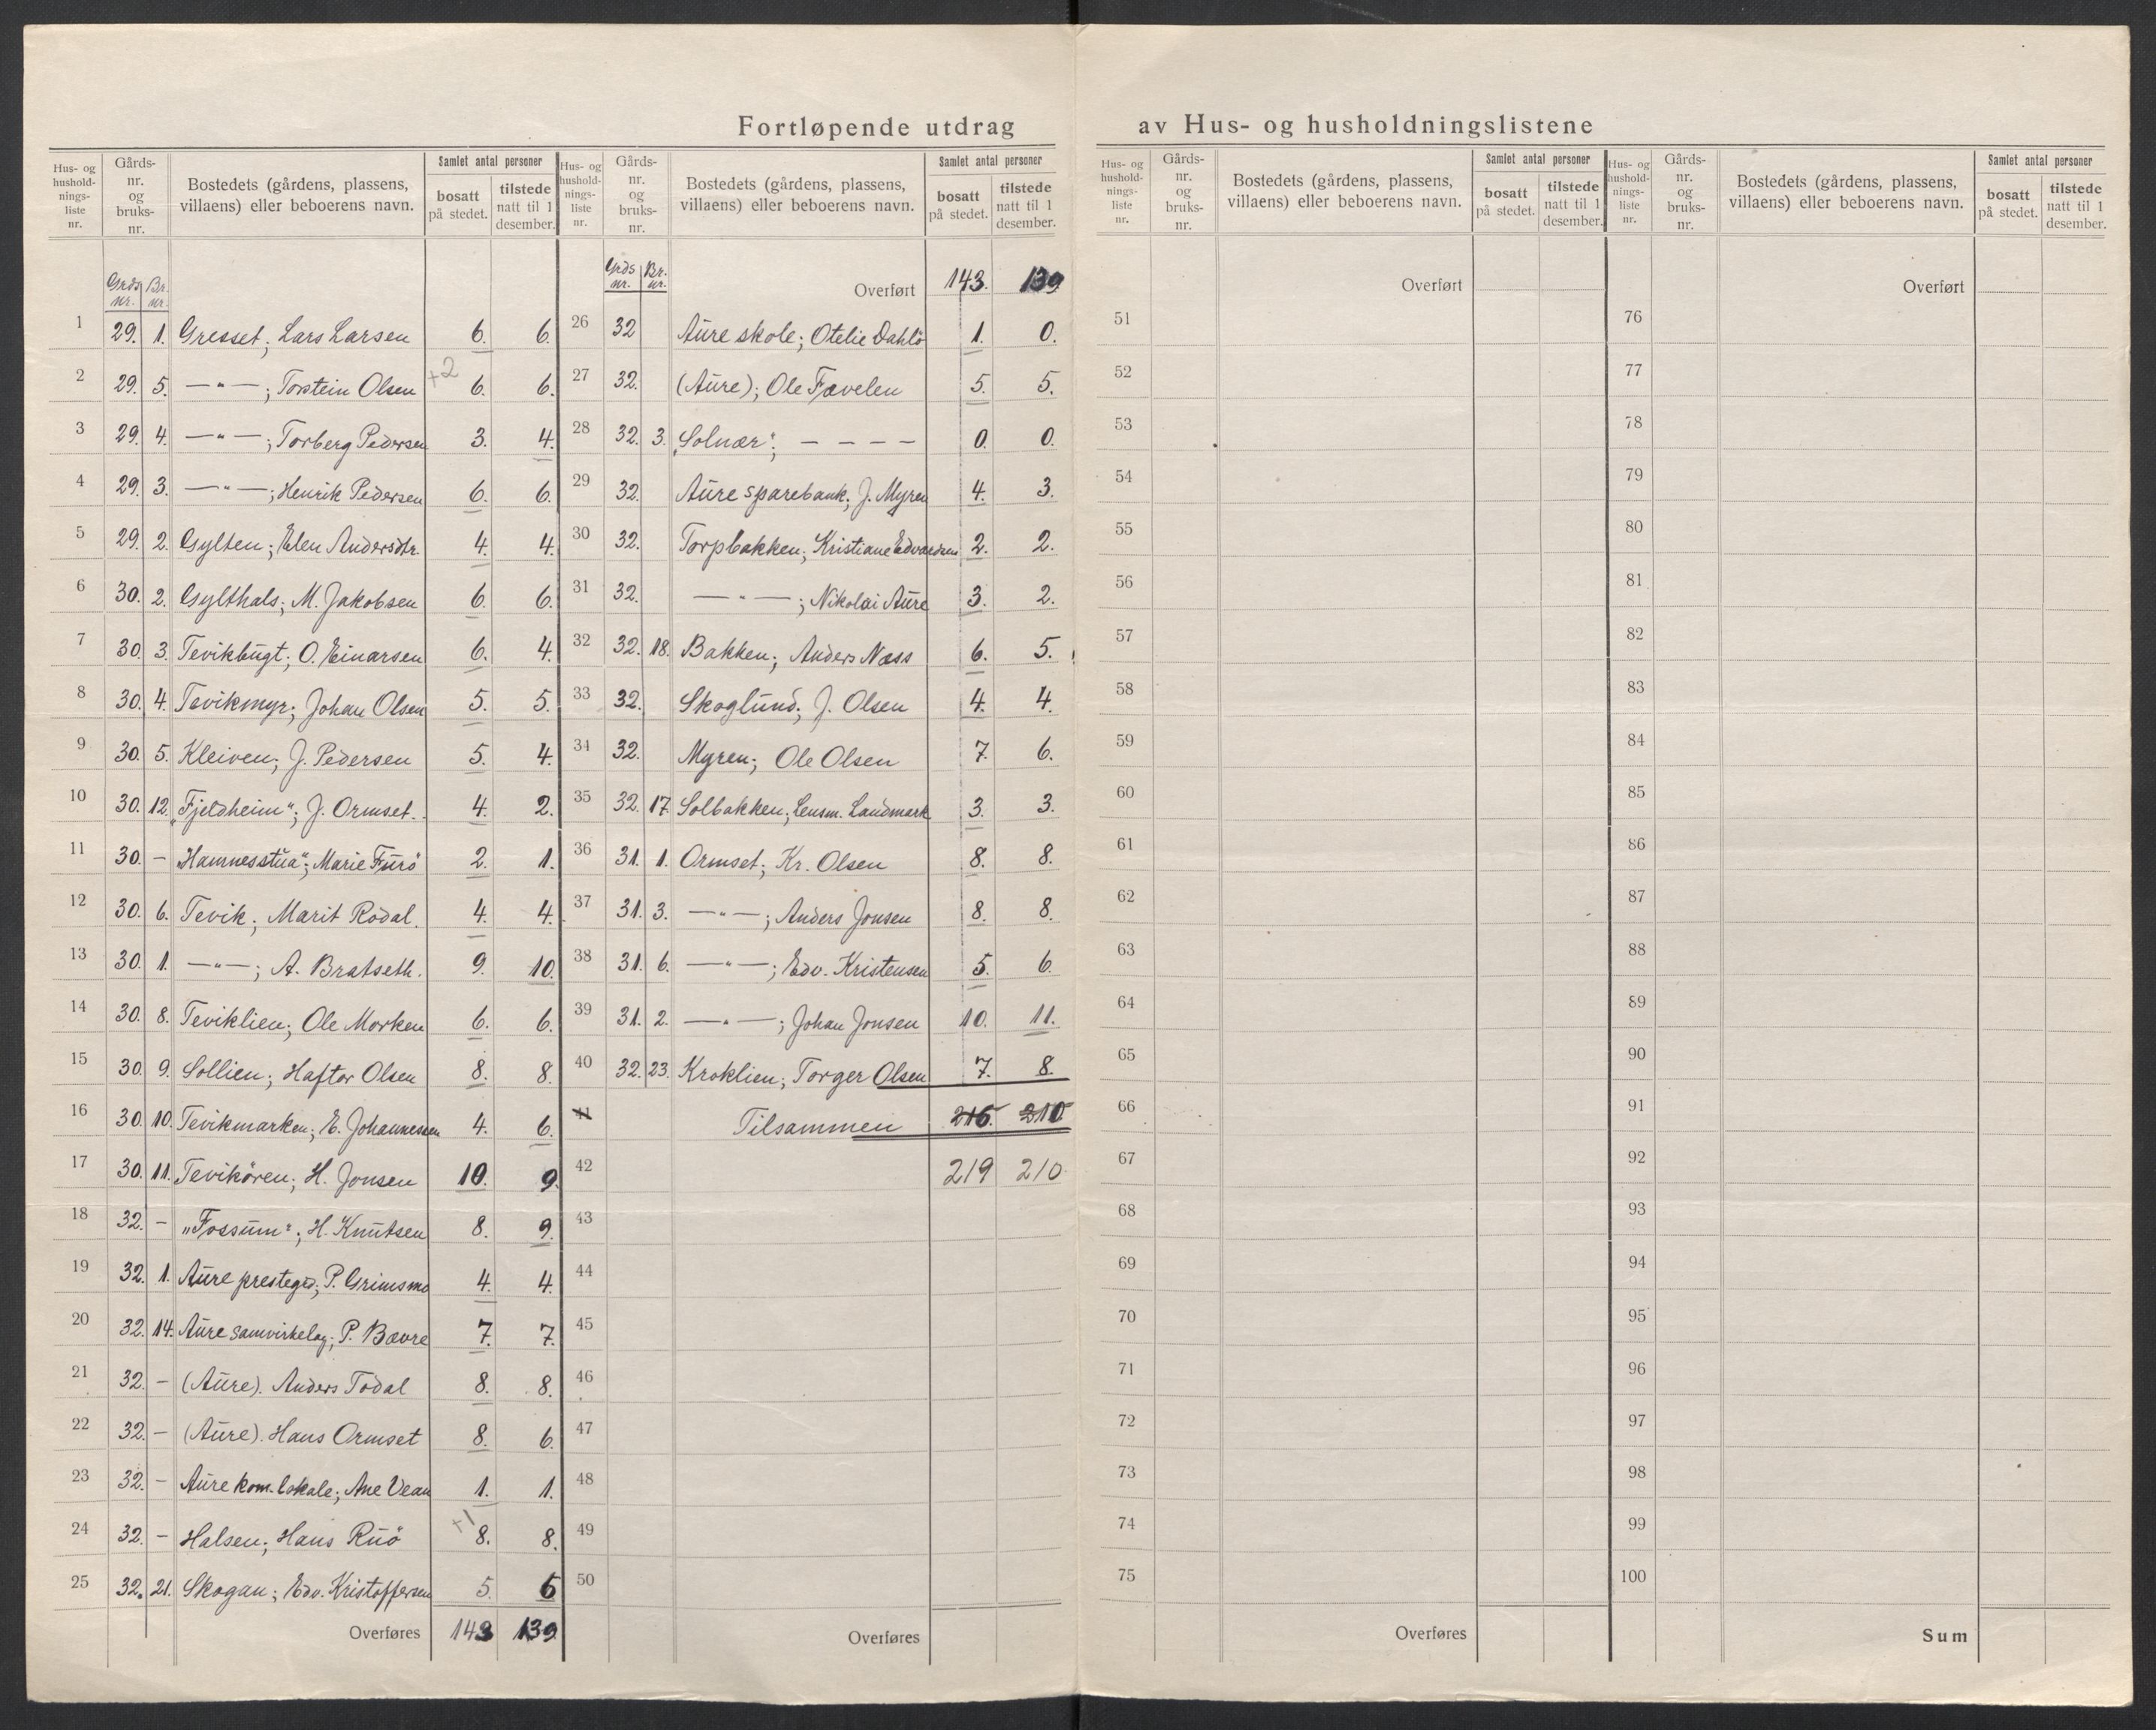 Fortløpende utdrag av Hus- og husholdningslistene
Hus- og hushold-nings-liste nr. Gårds-nr. og bruks-nr. Bostedets (gårdens, plassens, villaens) eller beboerens navn. Samlet antal personer bosatt på stedet. tilstede natt til 1 desember.
Grds nr. Br. nr.
1 29. 1. Gresset; Lars Larsen 6. 6.
2 29. 5. —"—; Torstein Olsen +2 6. 6.
3 29. 4. —"—; Torberg Pedersen 3. 4.
4 29. 3. —"—; Henrik Pedersen 6. 6.
5 29. 2. Gylten; Elen Andersdtr. 4. 4.
6 30. 2. Gylthals; M. Jakobsen 6. 6.
7 30. 3. Tevikbugt; O. Einarsen 6. 4.
8 30. 4. Tevikmyr; Johan Olsen 5. 5.
9 30. 5. Kleiven; J. Pedersen 5. 4.
10 30. 12. „Fjeldheim"; J. Ormset. 4. 2.
11 30. – „Hamnesstua"; Marie Furö 2. 1.
12 30. 6. Tevik; Marit Rodal. 4. 4.
13 30. 1. —"—; A. Bratseth. 9. 10.
14 30. 8. Teviklien; Ole Morken 6. 6.
15 30. 9. Sollien; Haftor Olsen 8. 8.
16 30. 10. Tevikmarken; E. Johannessen 4. 6.
17 30. 11. Tevikören; H. Jonsen 10. 9.
18 32. – „Fossum"; H. Knutsen 8. 9.
19 32. 1. Aure prestegd; P. Grimsmo 4. 4.
20 32. 14. Aure samvirkelag; P. Bævre 7. 7.
21 32. – (Aure). Anders Todal 8. 8.
22 32. – (Aure). Hans Ormset 8. 6.
23 32. – Aure kom. lokale; Ane Vean 1. 1.
24 32. – Halsen; Hans Ruö +1 8. 8.
25 32. 21. Skogan; Edv. Kristoffersen 5. 5
Overføres 143 139
Hus- og hushold-nings-liste nr. Gårds-nr. og bruks-nr. Bostedets (gårdens, plassens, villaens) eller beboerens navn. Samlet antal personer bosatt på stedet. tilstede natt til 1 desember.
Grds nr. Br. nr. Overført 143. 139
26 32 Aure skole; Otelie Dahlö 1. 0.
27 32. (Aure); Ole Fævelen 5. 5.
28 32. 3. „Solnær"; – – – – 0. 0.
29 32. Aure sparebank; J. Myren 4. 3.
30 32. Torpbakken; Kristiane Edvardsen 2. 2.
31 32. —"—; Nikolai Aure 3. 2.
32 32. 18. Bakken; Anders Næss 6. 5.
33 32. Skoglund; J. Olsen 4. 4.
34 32. Myren; Ole Olsen 7. 6.
35 32. 17. Solbakken; Lensm. Landmark 3. 3.
36 31. 1. Ormset; Kr. Olsen 8. 8.
37 31. 3. —"—; Anders Jonsen 8. 8.
38 31. 6. —"—; Edv. Kristensen 5. 6.
39 31. 2. —"—; Johan Jonsen 10. 11.
40 32. 23. Kroklien; Torger Olsen 7. 8.
41 Tilsammen 216. 210
42 219 210.
43
44
45
46
47
48
49
50
Overføres
Hus- og hushold-nings-liste nr. Gårds-nr. og bruks-nr. Bostedets (gårdens, plassens, villaens) eller beboerens navn. Samlet antal personer bosatt på stedet. tilstede natt til 1 desember.
Overført
51
52
53
54
55
56
57
58
59
60
61
62
63
64
65
66
67
68
69
70
71
72
73
74
75
Overføres
Hus- og hushold-nings-liste nr. Gårds-nr. og bruks-nr. Bostedets (gårdens, plassens, villaens) eller beboerens navn. Samlet antal personer bosatt på stedet. tilstede natt til 1 desember.
Overført
76
77
78
79
80
81
82
83
84
85
86
87
88
89
90
91
92
93
94
95
96
97
98
99
100
Sum